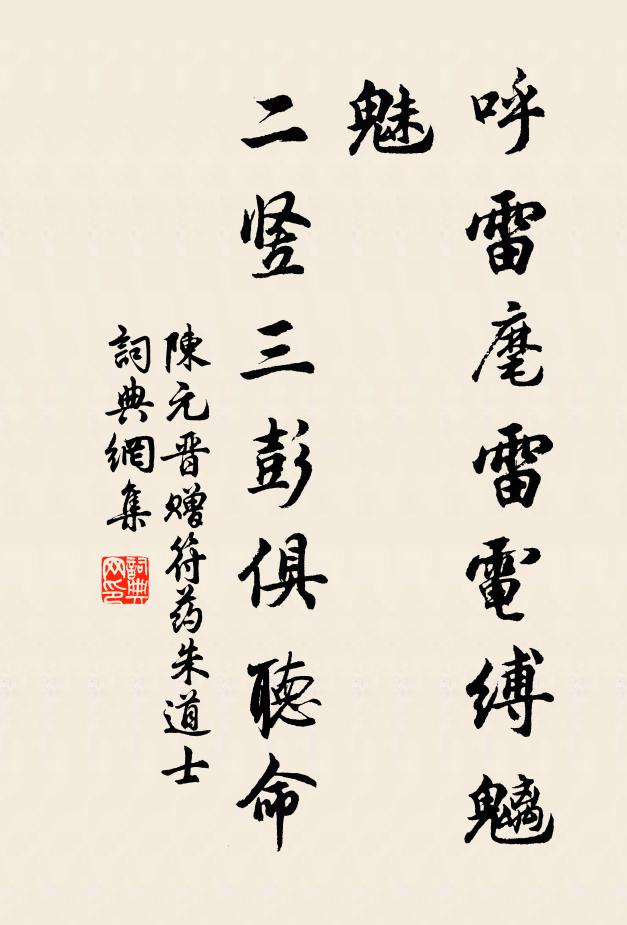 呼雷麾雷電縛魑
魅
二竖三彭俱聽命
陳元晋赠符药朱道士
詞典網集
詞典网印